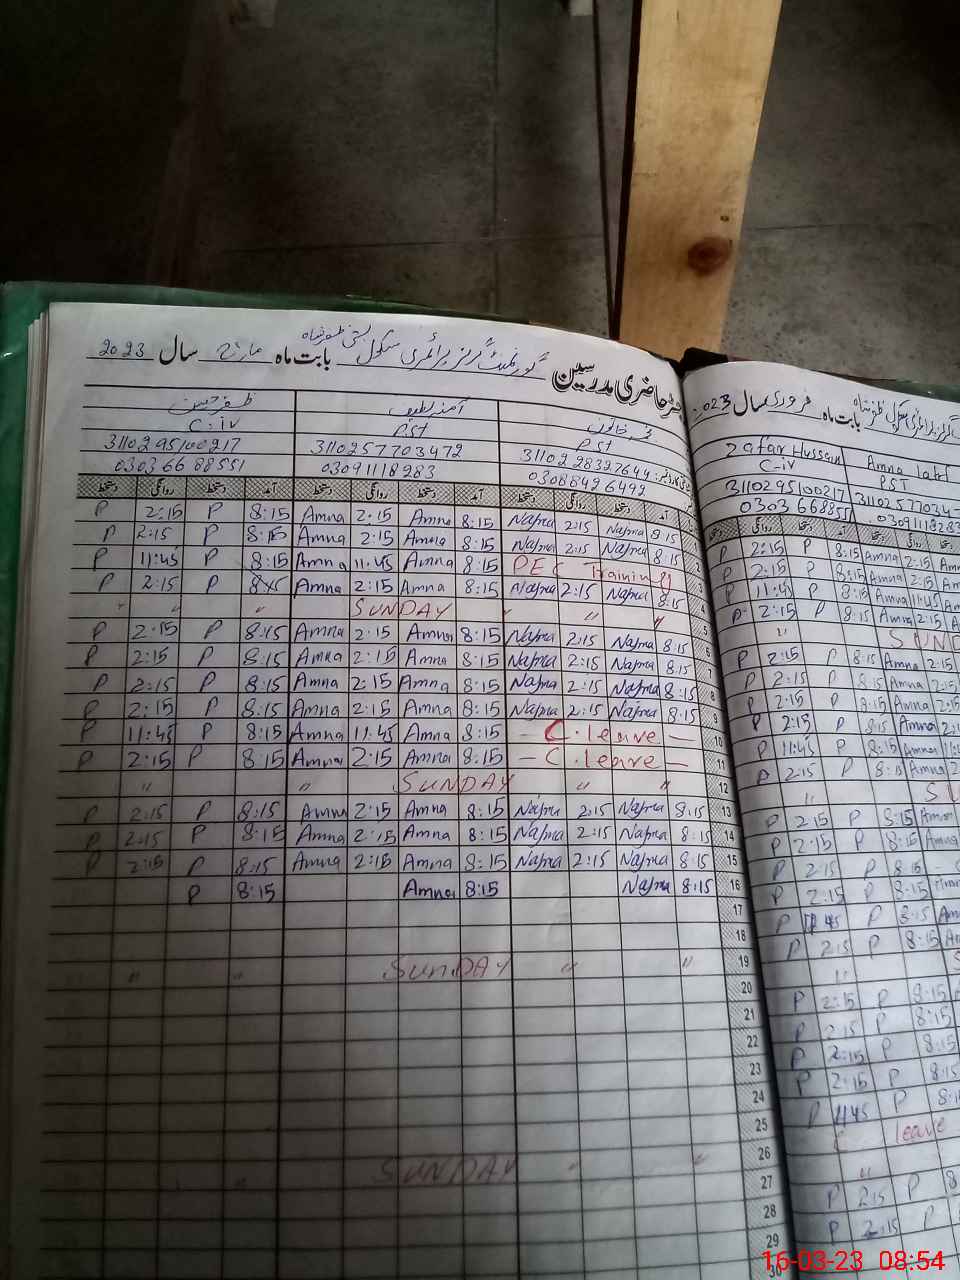 رجسٹر حاضری مدرسین گورنمنٹ گرلز پرائمری سکول بستی ظفر شاہ بابت ماہ مارچ سال 2023
نجمہ خاتون آمنہ لطیف ظفر حسین
PST PST C-iv
3110228327644 3110257703472 3110295100217
03088426492 03091118283 03036688551
آمد دستخط روانگی دستخط آمد دستخط روانگی دستخط آمد دستخط روانگی دستخط
P 2:15 P 8:15 Amna 2:15 Amna 8:15 Najma 2:15 Najma 8:15
P 2:15 P 8:15 Amna 2:15 Amna 8:15 Najma 2:15 Najma 8:15 2
P 11:45 P 8:15 Amna 11:45 Amna 8:15 PEC Training
P 2:15 P 8:15 Amna 2:15 Amna 8:15 Najma 2:15 Najma 8:15 4
" " " SUNDAY " " 5
P 2:15 P 8:15 Amna 2:15 Amna 8:15 Najma 2:15 Najma 8:15 6
P 2:15 P 8:15 Amna 2:15 Amna 8:15 Najma 2:15 Najma 8:15 7
P 2:15 P 8:15 Amna 2:15 Amna 8:15 Najma 2:15 Najma 8:15 8
P 2:15 P 8:15 Amna 2:15 Amna 8:15 Najma 2:15 Najma 8:15 9
P 11:45 P 8:15 Amna 11:45 Amna 8:15 - C.leave - 10
P 2:15 P 8:15 Amna 2:15 Amna 8:15 - C.leave - 11
" " SUNDAY " " 12
P 2:15 P 8:15 Amna 2:15 Amna 8:15 Najma 2:15 Najma 8:15 13
P 2:15 P 8:15 Amna 2:15 Amna 8:15 Najma 2:15 Najma 8:15 14
P 2:15 P 8:15 Amna 2:15 Amna 8:15 Najma 2:15 Najma 8:15 15
P 8:15 Amna 8:15 Najma 8:15 16
17
18
" " SUNDAY " " 19
20
21
22
23
24
25
" SUNDAY " " 26
27
28
29
30
بابت ماہ فروری سال 2023
Zafar Hussain Amna latif
C-iv PST
3110295100217 31102577034
0303668855 03091118283
روانگی دستخط آمد دستخط
P 2:15 P 8:15 Amna 2:15 Amna
P 2:15 P 8:15 Amna 2:15 Amna
P 11:45 P 8:15 Amna 11:45 Amna
P 2:15 P 8:15 Amna 2:15 A
" SUND
P 2:15 P 8:15 Amna 2:15
P 2:15 P 8:15 Amna 2:15
P 2:15 P 8:15 Amna 2:15
P 2:15 P 8:15 Amna 2:15
P 11:45 P 8:15 Amna 11:45
P 2:15 P 8:15 Amna 2
" SU
P 2:15 P 8:15 Amna
P 2:15 P 8:15 Amna
P 2:15 P 8:15
P 2:15 P 8:15 Amna
P 11:45 P 8:15 Am
P 2:15 P 8:15 Am
" S
P 2:15 P 8:15
P 2:15 P 8:15
P 2:15 P 8:15
P 2:15 P 8:15
P 11:45 P 8:1
C leave
"
P 2:15 P 8
P 2:15 P
16-03-23 08:54